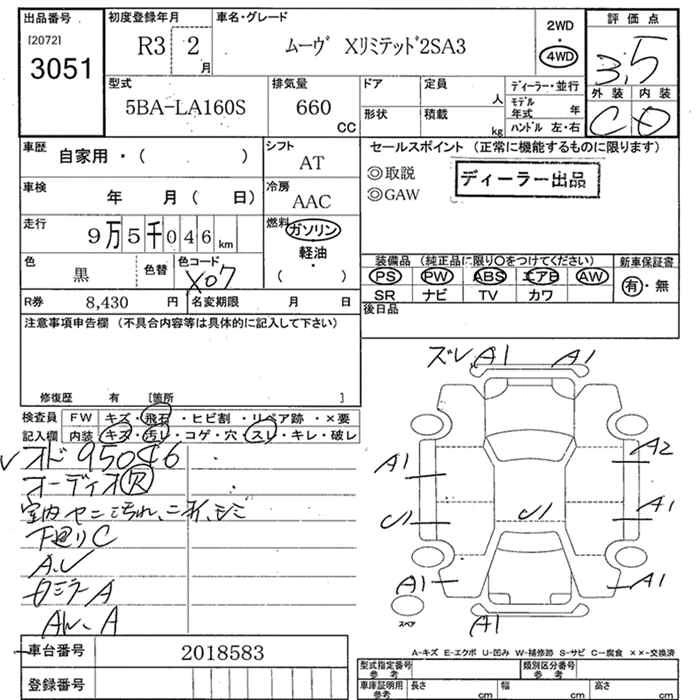 出品番号 初度登録年月 車名・グレード 2WD ・ 4WD 評価点
[2072]
3051
R3 2月 ムーヴ Xリミテッド2SA3 3.5
外装 内装
C D
型式 排気量 ドア 定員 人 ディーラー・並行
5BA-LA160S 660 CC 形状 積載 kg モデル年式 年
ハンドル 左・右
車歴 自家用・( ) シフト AT
セールスポイント (正常に機能するものに限ります)
◎取説 ディーラー出品
◎GAW
車検 年 月 ( 日) 冷房 AAC
走行 9万5千046km 燃料 ガソリン・軽油・( )
色 黒 色替 色コード X07
装備品 (純正品に限り○をつけてください) 新車保証書
PS PW ABS エアB AW 有・無
SR ナビ TV カワ
R券 8,430 円 名変期限 月 日
後日品
注意事項申告欄 (不具合内容等は具体的に記入して下さい)
修復歴 有 [箇所 ]
検査員 FW キズ・飛石・ヒビ割・リペア跡・×要
記入欄 内装 キズ・汚レ・コゲ・穴・スレ・キレ・破レ
オド 95046
オーディオR
下廻りC
ズレ A1 A1
A1 A2
U1 U1 A1
A1 A1
A1
スペア
車台番号 2018583
登録番号
A-キズ E-エクボ U-凹み W-補修跡 S-サビ C-腐食 ××-交換済
型式指定番号 参考 類別区分番号 参考
車庫証明用 参考 長さ cm 幅 cm 高さ cm